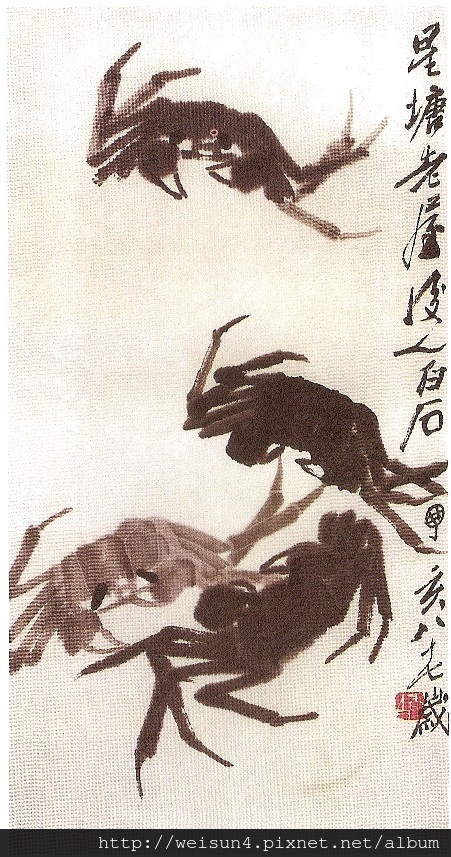 星塘老屋後人白石甲亥八歲
http://weisun4.pixnet.net/album